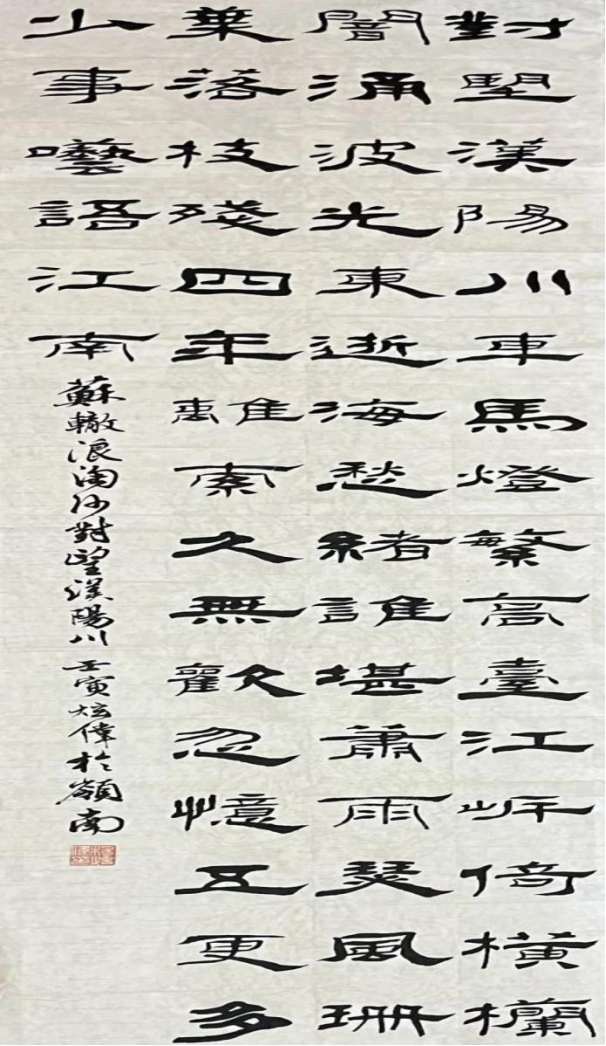 對朢漢陽川車馬燈繁高臺江岸倚橫欄
闇涌波光東逝海愁緒誰堪蕭雨瑟風珊
葉落枝殘四年離索久無歡忽憶五更多
少事囈語江南
蘇轍浪淘沙對望漢陽川 壬寅炫偉於嶺南